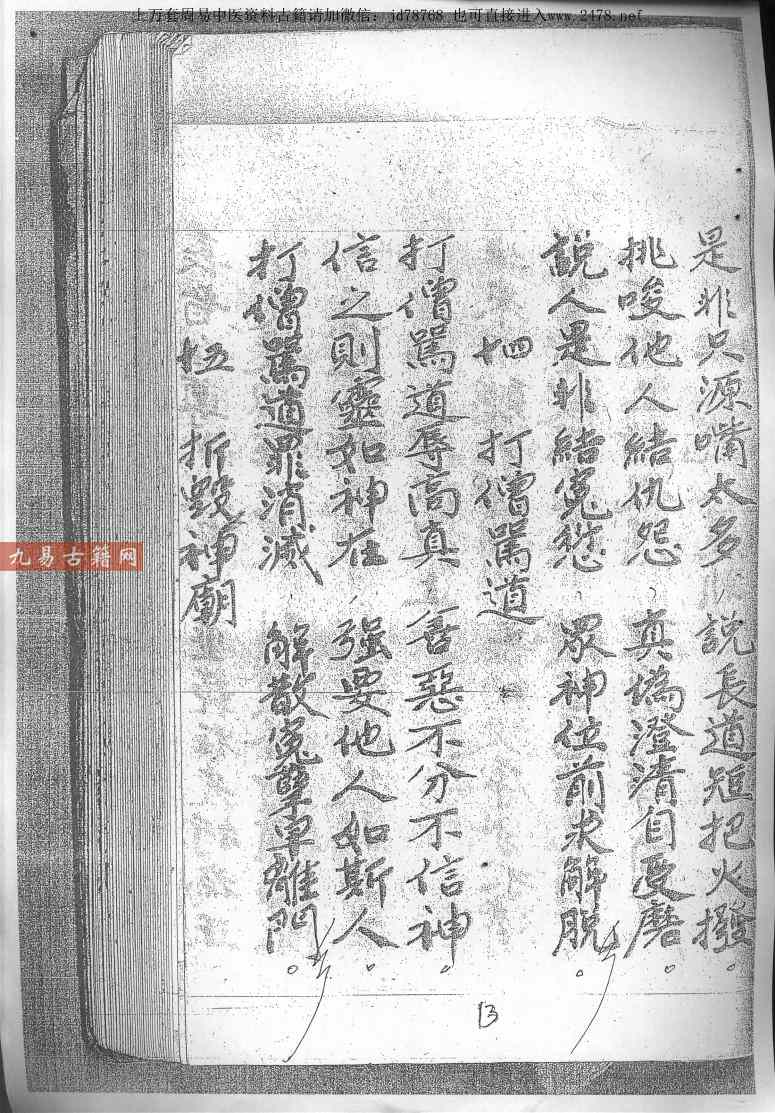 上万套周易中医资料古籍请加微信：jd78768 也可直接进入www.2478.net
是非只源嘴太多，說長道短把火撥。
挑唆他人結仇怨，真偽澄清自受磨。
說人是非結冤愆，眾神位前求解脫。
十四 打僧罵道
打僧罵道辱高真，善惡不分不信神。
信之則靈如神在，强要他人如斯人。
打僧罵道罪消滅，解散冤孽卑離門。
十五 折毀神廟
九易古籍网
13